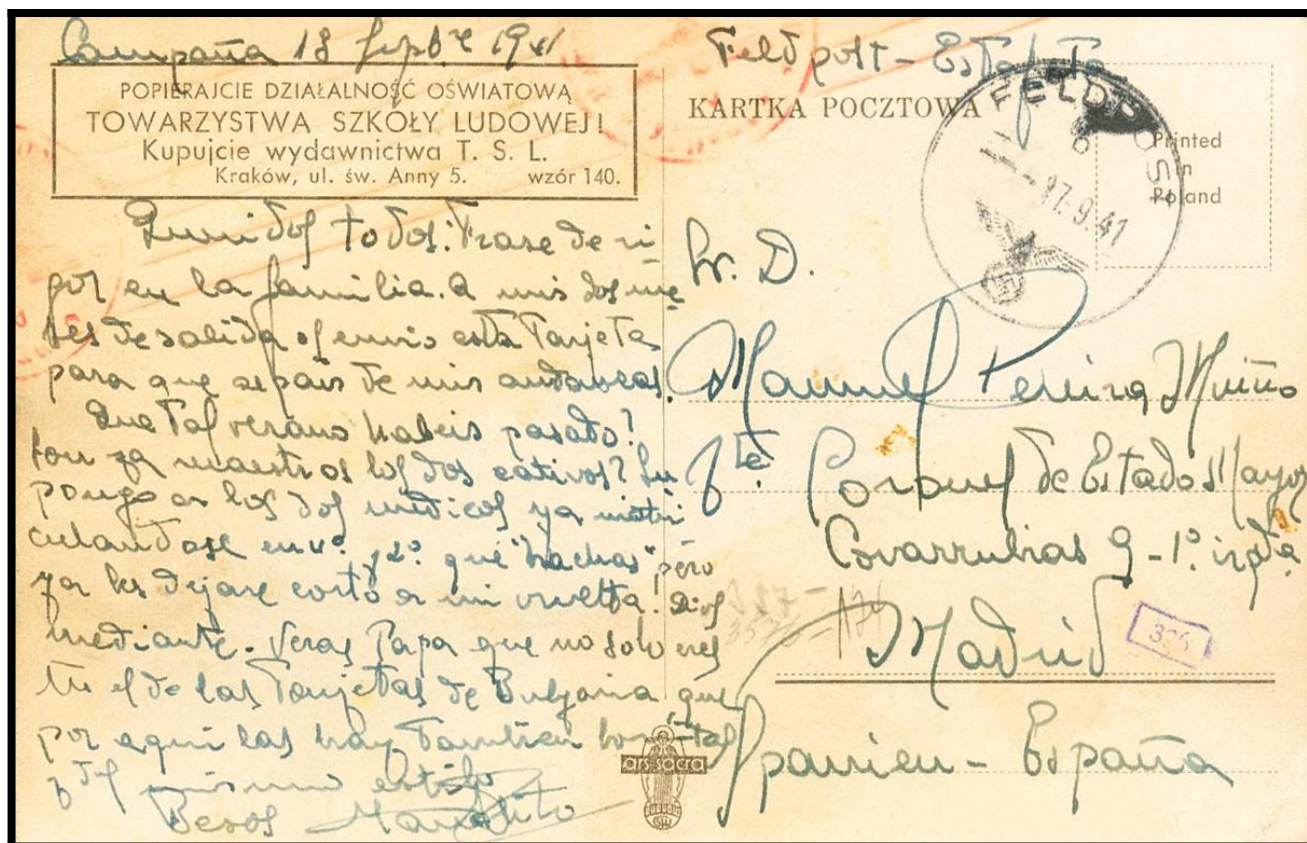 Campaña 13 Sepbre 1941
POPIERAJCIE DZIAŁALNOŚĆ OŚWIATOWĄ
TOWARZYSTWA SZKOŁY LUDOWEJ!
Kupujcie wydawnictwa T. S. L.
Kraków, ul. św. Anny 5. wzór 140.
todos: Frase de ri
gor en la familia. A mis dos me
ses de salida os envio esta Tarjeta
para que sepais de mis andanzas.
Que Tal verano habeis pasado?
Son ya maestros los dos cativos? Su
pongo a los dos medicos ya matri
culandose en 4º y 2º que "hachas" pero
ya les dejare corto a mi vuelta. Dios
mediante. Veras Papa que no solo eres
tu el de las Tarjetas de Bulgaria, que
por aqui las hay Tambien
y del mismo estilo
Besos Manolito
Feldpost - Estafeta
KARTKA POCZTOWA
FELDPOST
b
17.9.41
Printed
in
Poland
Sr. D.
Manuel Pereira
Tte. Coronel de Estado Mayor
Covarrubias 9 - 1º izqda
Madrid
Spanien - España
ars sacra